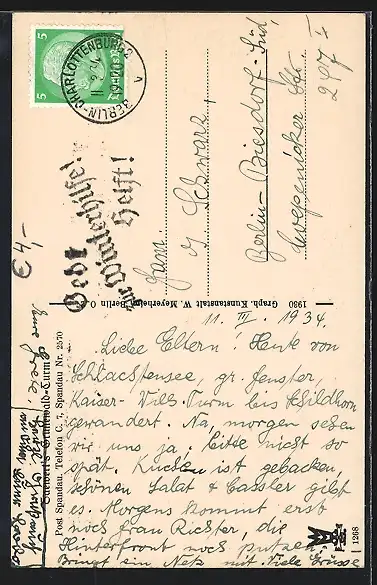 5
5
BERLIN-CHARLOTTENBURG 2
11.2.34
Gebt
zur Winterhilfe!
Helft!
Fam.
Schwarz,
Berlin-Biesdorf-Süd,
Coepenicker Str.
297
1930 Graph. Kunstanstalt W. Meyerheim, Berlin O.
Grunewald-Turm
Post Spandau. Telefon C. 7, Spandau Nr. 2570
1268
11. III. 1934.
Liebe Eltern! Heute von
Schlachtensee, gr. Fenster,
Kaiser-Wilh. Turm bis Schildhorn
gewandert. Na, morgen sehen
wir uns ja, bitte nicht so
spät. Kuchen ist gebacken,
schönen Salat & Cassler gibt
es. Morgens kommt erst
noch Frau Richter, die
Hinterfront noch putzen.
Bringt ein Netz mit. Viele Grüsse